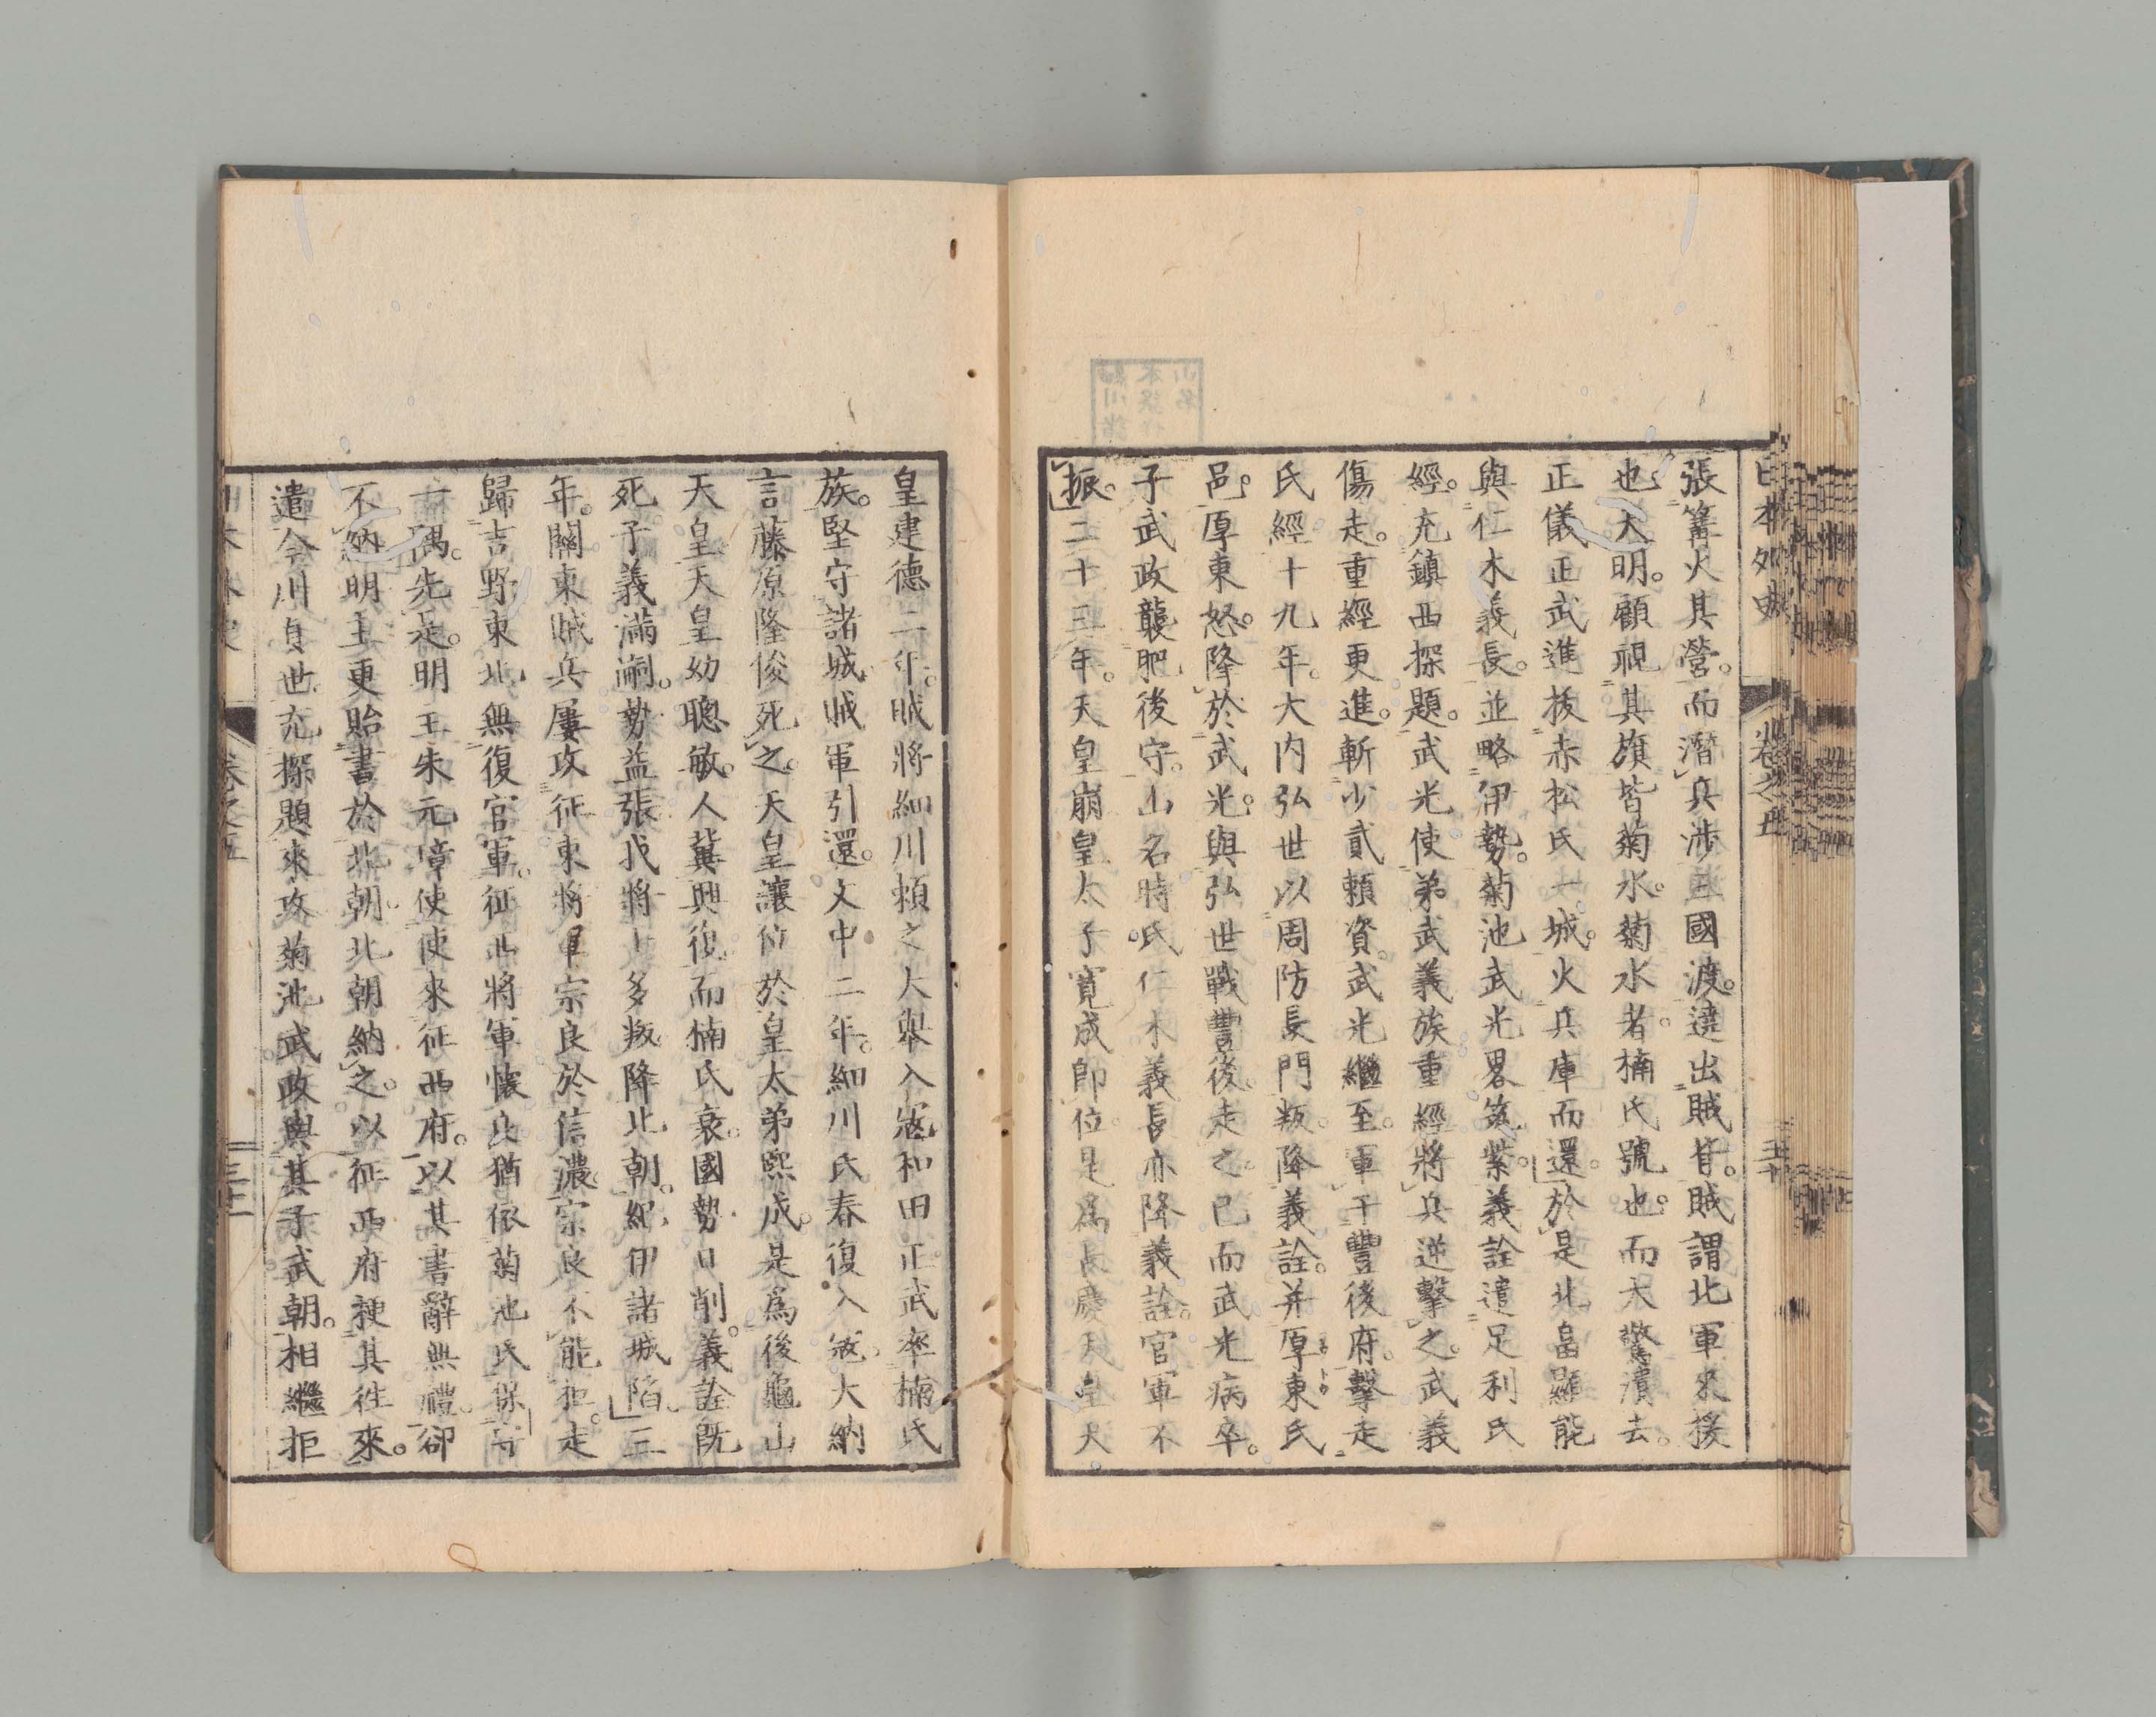 日本外史
卷之五
張篝火其營。而潛兵渉三國渡。遶出賊背。賊謂北軍來援
也。天明。顧視其旗皆菊水。菊水者。楠氏號也。而大驚潰去。
正儀正武進拔赤松氏一城。火兵庫而還。於是北畠顯能
與仁木義長。並略伊勢。菊池武光畧筑紫。義詮遣足利氏
經。充鎮西探題。武光使弟武義族重經將兵逆擊之。武義
傷走。重經更進。斬少貳賴資。武光繼至。軍于豐後府。擊走
氏經。十九年。大内弘世以周防長門叛降義詮。并厚東氏
邑。厚東怒。降於武光。與弘世戰豐後。走之。已而武光病卒。
子武政襲肥後守。山名時氏。仁木義長亦降義詮。官軍不
振。二十三年。天皇崩。皇太子寬成即位。是爲長慶天皇。天
皇建德二年。賊將細川賴之大舉入寇。和田正武率楠氏
族。堅守諸城。賊軍引還。文中二年。細川氏春復入寇。大納
言藤原隆俊死之。天皇讓位於皇太弟熙成。是爲後龜山
天皇。天皇幼聰敏。人冀興復。而楠氏衰。國勢日削。義詮既
死。子義滿嗣。勢益張。我將士多叛降北朝。紀伊諸城陷。三
年。關東賊兵屢攻征東將軍宗良於信濃。宗良不能拒。走
歸吉野。東北無復官軍。征西將軍懷良猶依菊池氏。保守
一隅。先是。明主朱元璋使使來征西府。以其書辭無禮。卻
不納。明主更貽書於北朝。北朝納之。以征西府梗其往來。
遣今川貞世。充探題。來攻菊池武政與其子武朝。相繼拒
卷之五